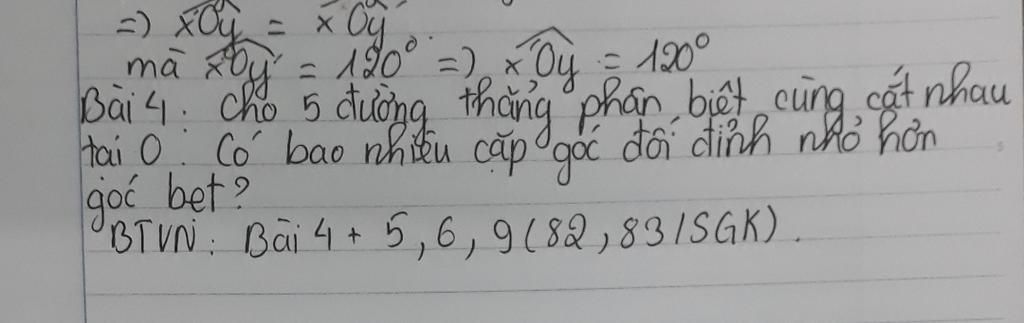 =) xOy = x'Oy'.
mà x'Oy' = 120° =) xOy = 120°
Bài 4: Cho 5 đường thẳng phân biệt cùng cắt nhau
tại O. Có bao nhiêu cặp góc đối đỉnh nhỏ hơn
góc bẹt?
BTVN: Bài 4 + 5, 6, 9 (82, 83/SGK).